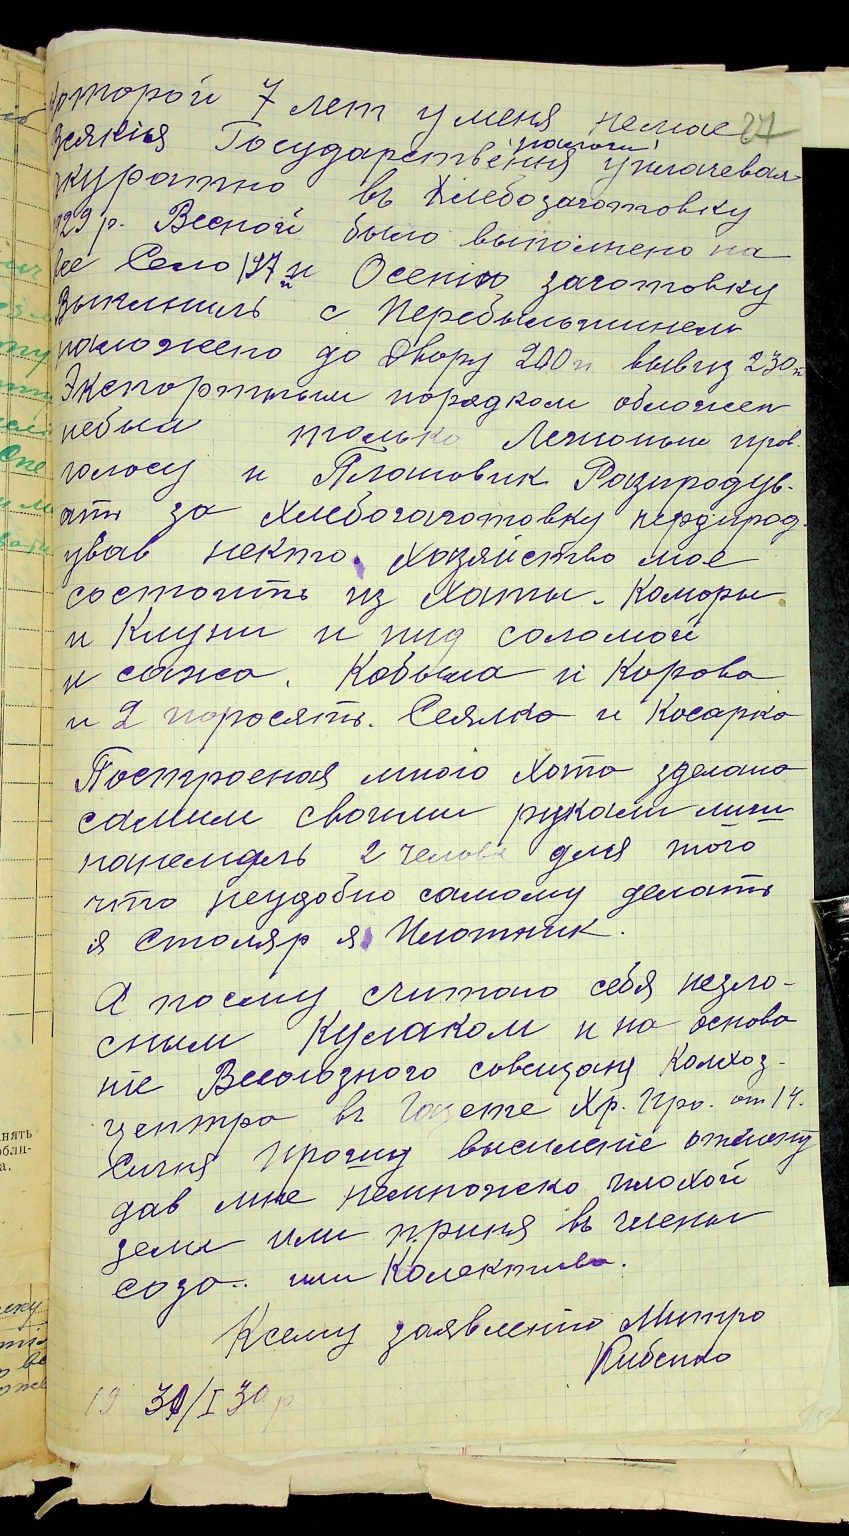 которой 7 лет у меня немає
27
Всякія Государственыя налоги уплачевал
акуратно въ Хлебозаготовку
1929 р. Весной было выполнено на
все Село 197 п и Осенню заготовку
Выкмниль с Перебильшинель
наложено до двору 200 п вывиз 230 п
Экспортным порядком обложен
небыл только Лешоным пров.
голосу и Плановик Розпродув-
ать за хлебозаготовку
ував некто. Хозяйство мое
состоить из хаты. Коморы
и Клуни и пид соломой
и сажа. Кобыла и Корова
и 2 поросять. Сеялка и Косарка
Построеная мною Хата зделана
самим своими руками лиш
нанемаль 2 челове для того
что неудобно самому делать
я Столяр я Плотник.
А посему считаю себя незло-
сным Кулаком и на основа
ніе Всесоюзного совещаня Колхоз-
центра въ Газете Хр. Про. от 14.
Сичня Прошу виселеніе отмену
дав мне немножко плохой
земл или приня въ члены
созо.. или Колектива.
Ксему заявленію Митро
Кибенко
19 31/I 30 р